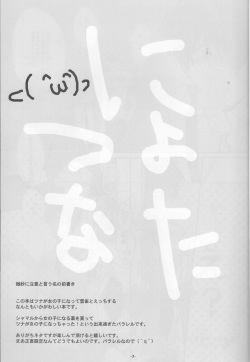 にょた
つな
⊂( ^ω^)⊃
微妙に注意と言う名の前書き
この本はツナが女の子になって雲雀とえっちする
なんともいかがわしい本です。
シャマルから女の子になる薬を貰って
ツナが女の子になっちゃった!という出来過ぎたパラレルです。
ありがちネタですが楽しんで頂けると嬉しいです。
まああど過設定なんてどうでもよいのです。パラレルなので(´ε`)